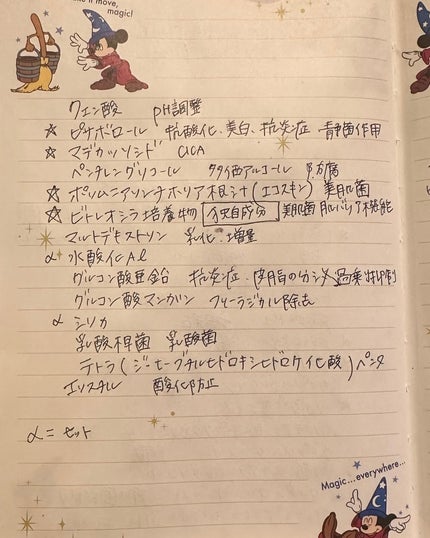 magic!
クエン酸 pH調整
☆ ピナボロール 抗酸化、美白、抗炎症、静菌作用
☆ マデカッソシド CICA
ペンチレングリコール 多価アルコール 防腐
☆ ポリムニアソンチホリア根汁(エコスキン) 美肌菌
☆ ビトレオシラ培養物 独自成分 美肌菌 肌バリア機能
マルトデキストリン 乳化、増量
α 水酸化Al
グルコン酸亜鉛 抗炎症、皮脂の分泌 過剰抑制
グルコン酸マンガン フリーラジカル除去
α シリカ
乳酸桿菌 乳酸菌
テトラ(ジ-t-ブチルヒドロキシヒドロケイヒ酸)ペンタ
エリスリチル 酸化防止
α = セット
Magic...everywhere...